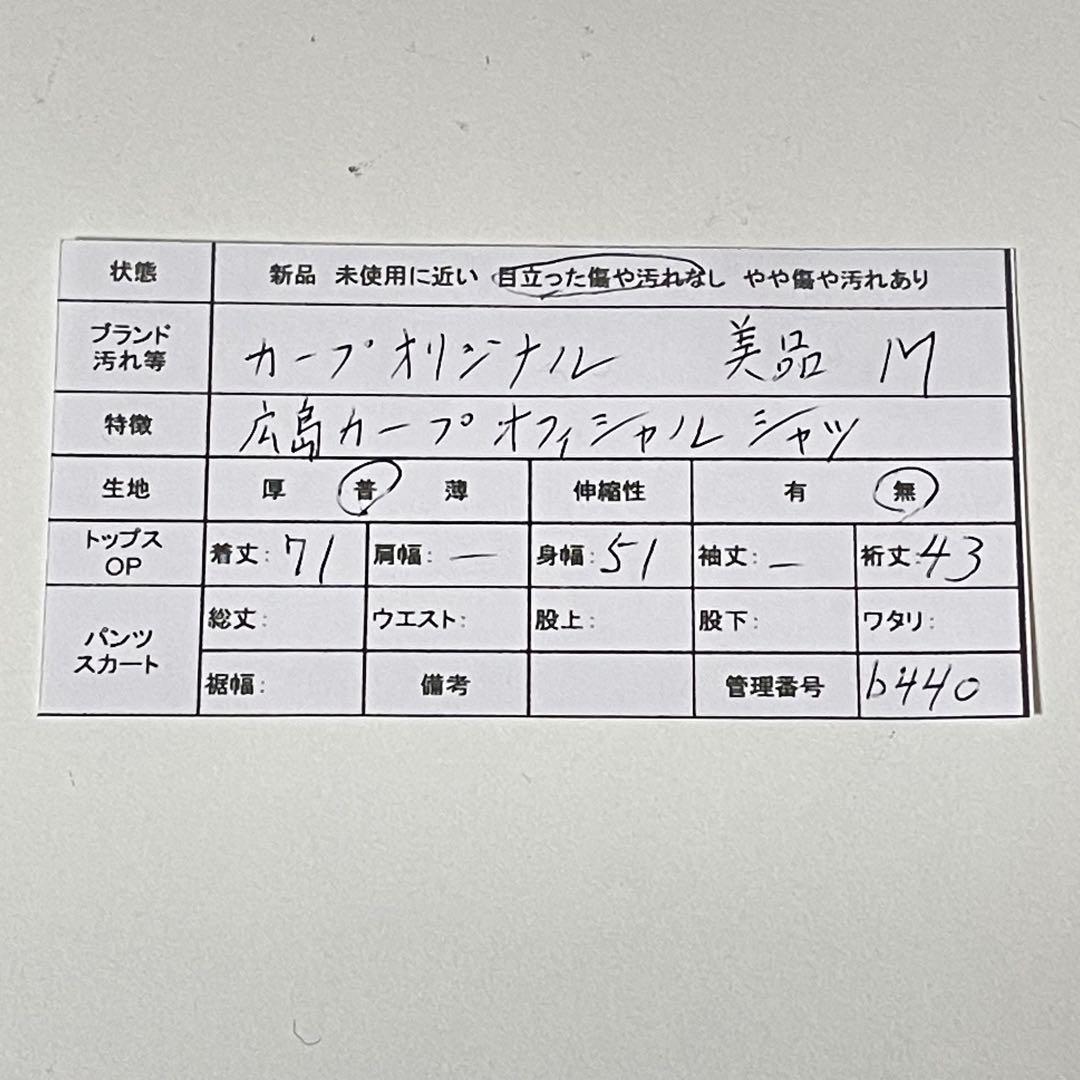 状態 新品 未使用に近い 目立った傷や汚れなし やや傷や汚れあり
ブランド
汚れ等 カープオリジナル 美品 M
特徴 広島カープオフィシャルシャツ
生地 厚 普 薄 伸縮性 有 無
トップス
OP 着丈: 71 肩幅: — 身幅: 51 袖丈: — 裄丈: 43
パンツ
スカート 総丈: ウエスト: 股上: 股下: ワタリ:
裾幅: 備考 管理番号 b440